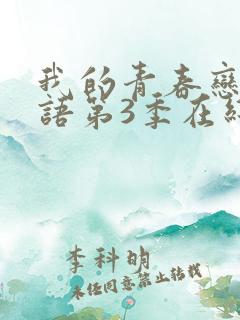 我的青春戀
語第3季在
李科明
未经同意禁止转载